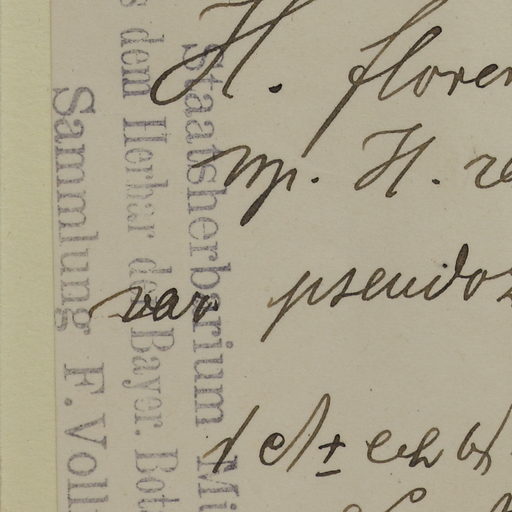 H. floren
ssp. H. re
var pseudoz
Staatsherbarium Mü
s dem Herbar de Bayer. Bot
Sammlung F. Voll